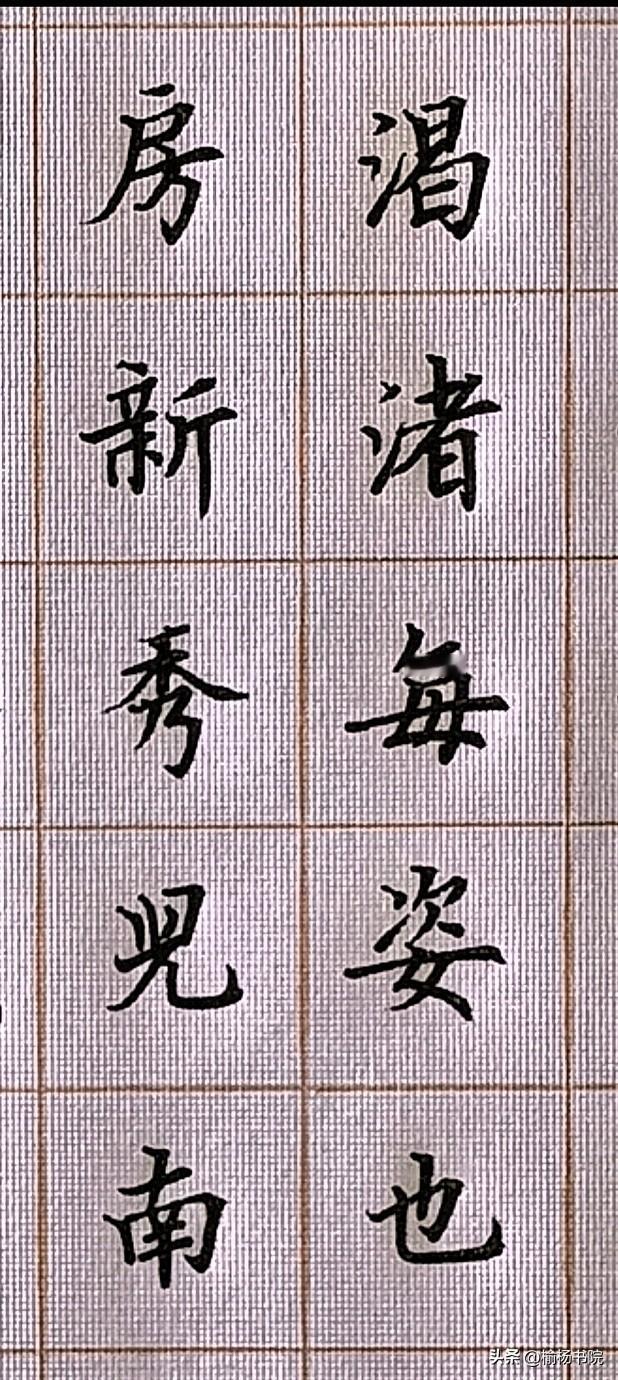 渴渚每姿也
房新秀児南
头条 @榆杨书院